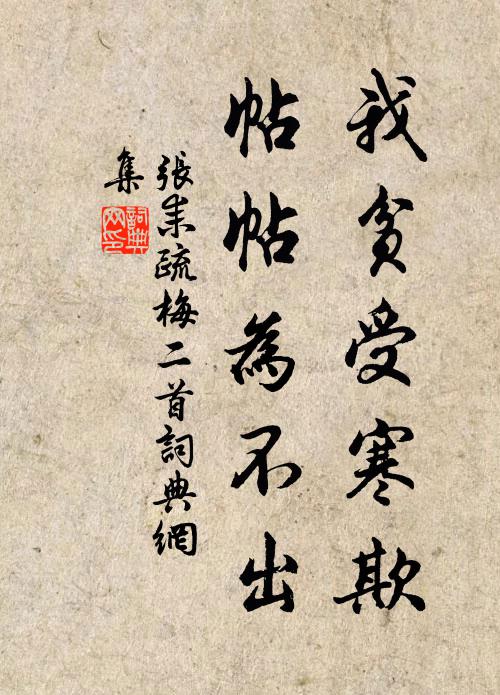 我貧受寒欺
帖帖為不出
張耒疏梅二首詞典網
集
詞典
网印